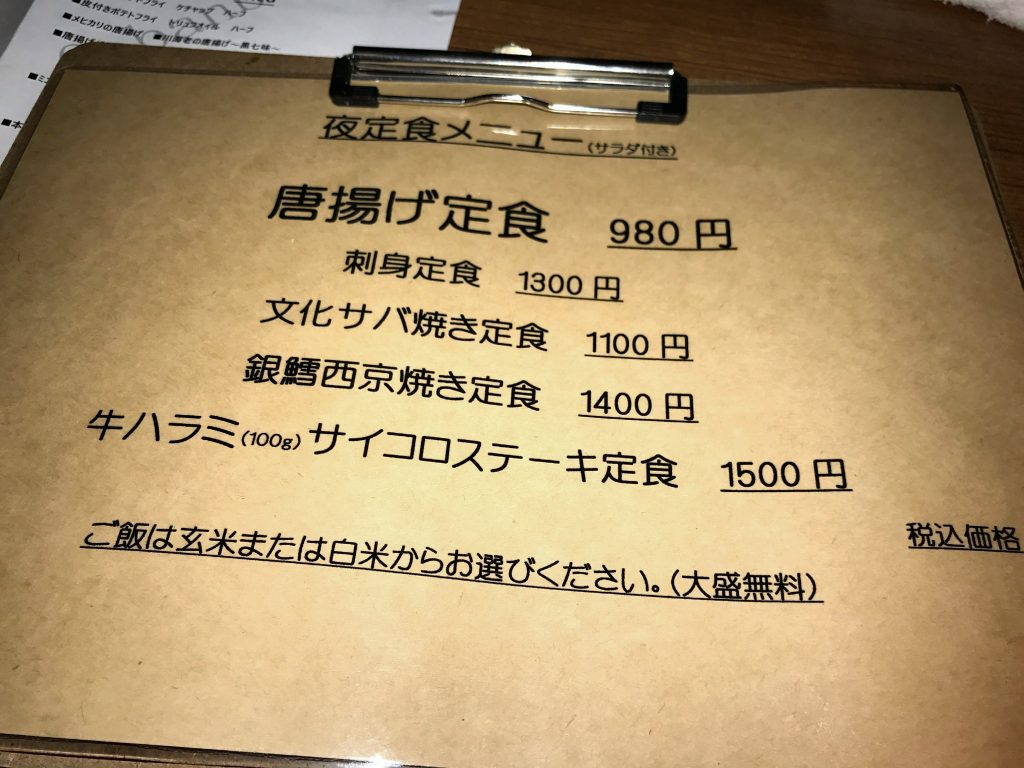 皮付きポテトフライ トリュフオイル ハーフ
■メヒカリの唐揚げ ■川海老の唐揚げ～黒七味～
■唐揚げ
夜定食メニュー(サラダ付き)
唐揚げ定食 980円
刺身定食 1300円
文化サバ焼き定食 1100円
銀鱈西京焼き定食 1400円
牛ハラミ(100g)サイコロステーキ定食 1500円
税込価格
ご飯は玄米または白米からお選びください。(大盛無料)